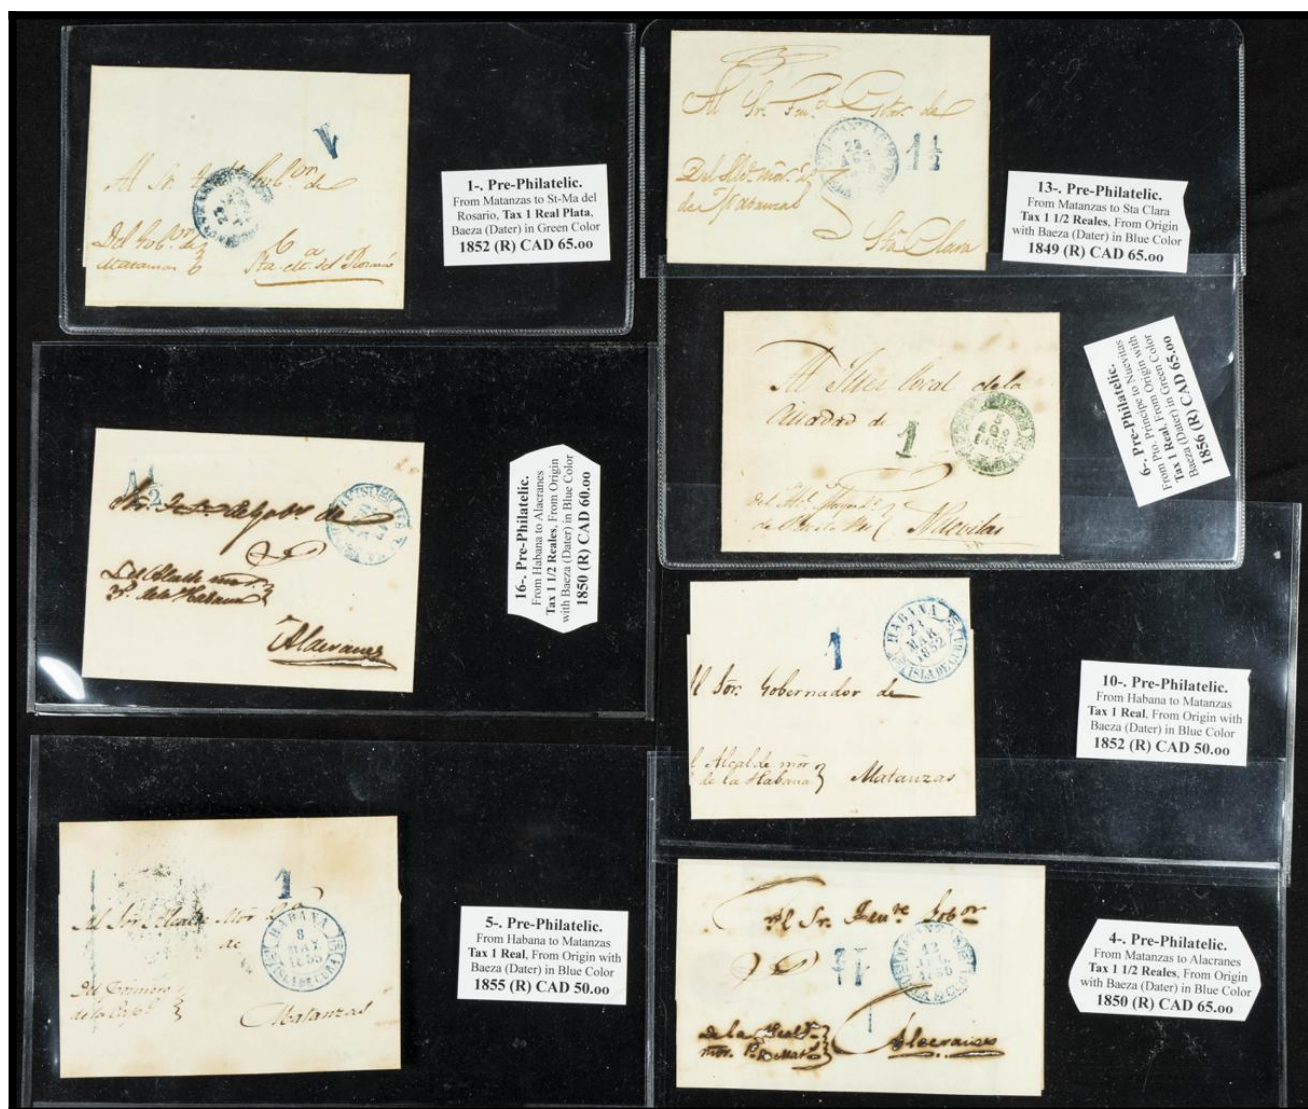 Al Sr.
de
Del Gobor. de
Matanzas
Sta. del Rosario
1-. Pre-Philatelic.
From Matanzas to St-Ma del
Rosario, Tax 1 Real Plata,
Baeza (Dater) in Green Color
1852 (R) CAD 65.oo
Al Sr. Tente. Gobor. de
22
1 1/2
de Matanzas
Sta Clara
13-. Pre-Philatelic.
From Matanzas to Sta Clara
Tax 1 1/2 Reales, From Origin
with Baeza (Dater) in Blue Color
1849 (R) CAD 65.oo
de
de la Habana
Alacranes
16-. Pre-Philatelic.
From Habana to Alacranes
Tax 1 1/2 Reales, From Origin
with Baeza (Dater) in Blue Color
1850 (R) CAD 60.oo
Al Juez local de la
Ciudad de
1
Nuevitas
6-. Pre-Philatelic.
From Pto. Principe to Nuevitas
Tax 1 Real, From Origin with
Baeza (Dater) in Green Color
1856 (R) CAD 65.oo
1
HABANA
23
MAR
1852
ISLA DE CUBA
Al Sor. Gobernador de
l Alcalde mor
de la Habana
Matanzas
10-. Pre-Philatelic.
From Habana to Matanzas
Tax 1 Real, From Origin with
Baeza (Dater) in Blue Color
1852 (R) CAD 50.oo
1
HABANA
8
MAY
1855
ISLA DE CUBA
Al Sor Alcalde Mor
de
Matanzas
5-. Pre-Philatelic.
From Habana to Matanzas
Tax 1 Real, From Origin with
Baeza (Dater) in Blue Color
1855 (R) CAD 50.oo
Al Sr. Tente Gobor
MATANZAS
12
JUL
1850
ISLA DE CUBA
1 1/2
Alacranes
4-. Pre-Philatelic.
From Matanzas to Alacranes
Tax 1 1/2 Reales, From Origin
with Baeza (Dater) in Blue Color
1850 (R) CAD 65.oo